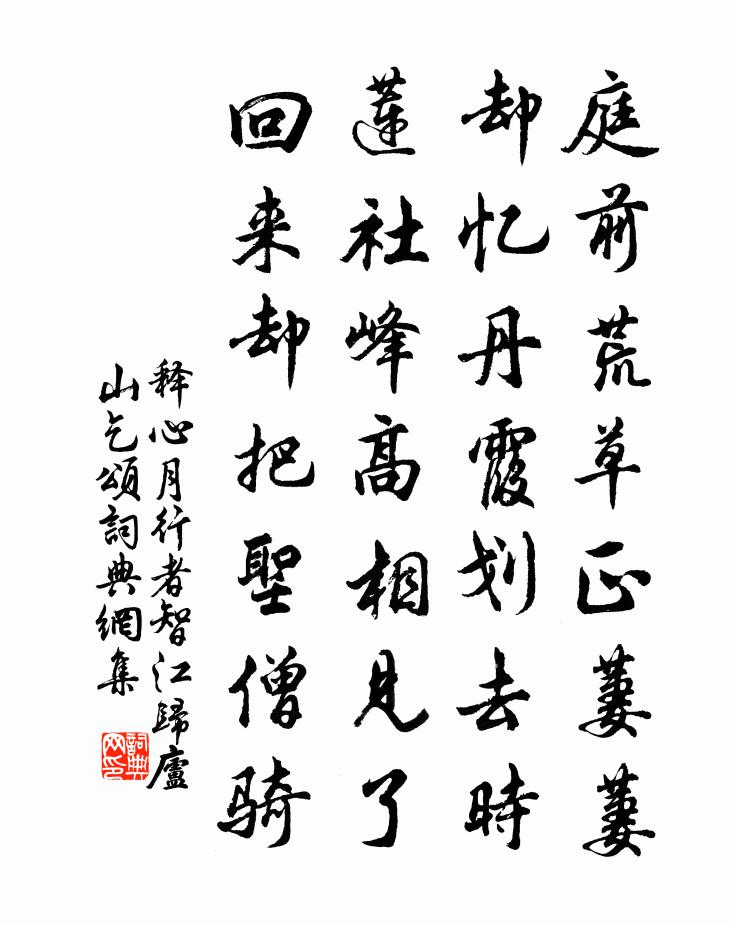 庭前荒草正萋萋
却忆丹霞划去時
蓮社峰高相見了
回来却把聖僧骑
释心月行者智江歸廬
山乞頌詞典網集
詞典網印